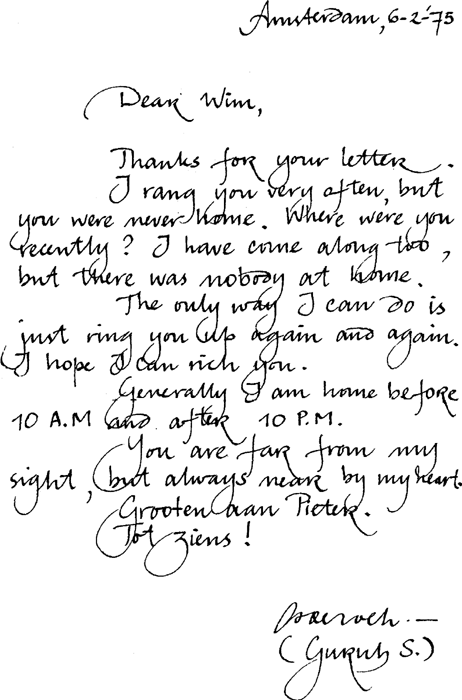 Amsterdam, 6-2-'75
Dear Wim,
Thanks for your letter.
I rang you very often, but
you were never home. Where were you
recently? I have come along too,
but there was nobody at home.
The only way I can do is
just ring you up again and again.
I hope I can rich you.
Generally I am home before
10 A.M and after 10 P.M.
You are far from my
sight, but always near by my heart.
Grooten aan Pieter.
Tot ziens!
(Guruh S.)